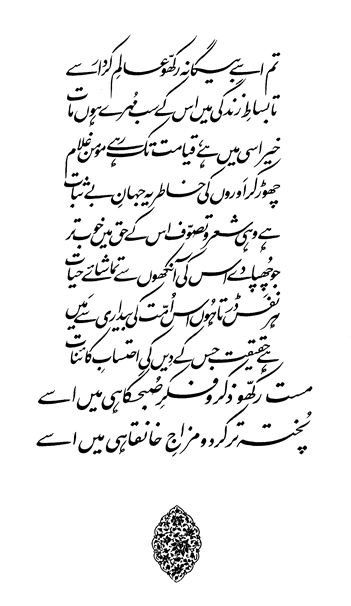 تم اسے بیگانہ رکھو عالمِ کردار سے
تا بساطِ زندگی میں اس کے سب مُہرے ہوں مات
خیر اسی میں ہے، قیامت تک رہے مومن غلام
چھوڑ کر اَوروں کی خاطر یہ جہانِ بے ثبات
ہے وہی شعر و تصوّف اس کے حق میں خوب تر
جو چُھپا دے اس کی آنکھوں سے تماشائے حیات
ہر نفَس ڈرتا ہُوں اس اُمّت کی بیداری سے مَیں
ہے حقیقت جس کے دِیں کی احتسابِ کائنات
مست رکھّو ذکر و فکرِ صُبحگاہی میں اسے
پُختہ تر کر دو مزاجِ خانقاہی میں اسے